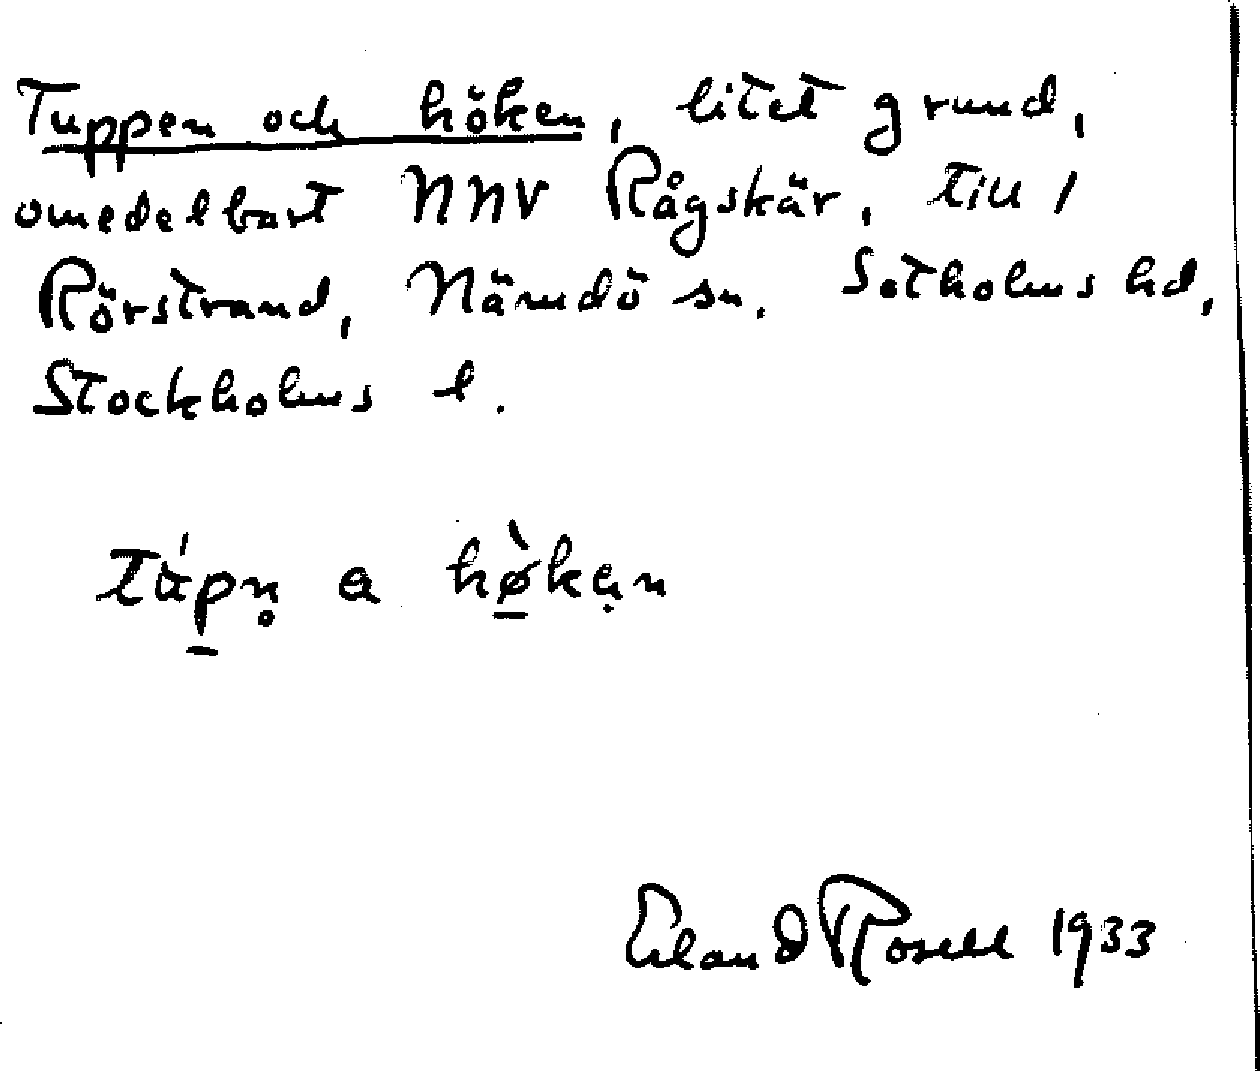 Tuppen och höken, litet grund,
omedelbart NNV Rågskär, till
Rörstrand, Nämdö sn. Sotholms hd,
Stockholms l.
tápn̥ a hø̀kạn
Erland Rosell 1933